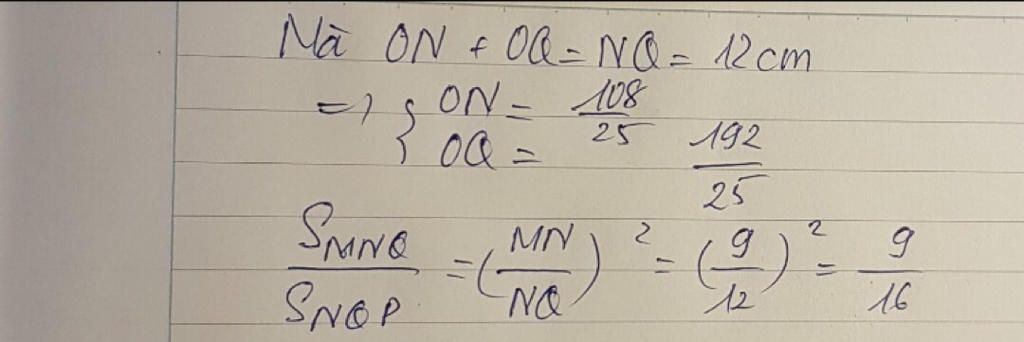 Mà ON + OQ = NQ = 12cm
=> { ON = 108/25
OQ = 192/25
S_MNQ/S_NQP = (MN/NQ)² = (9/12)² = 9/16